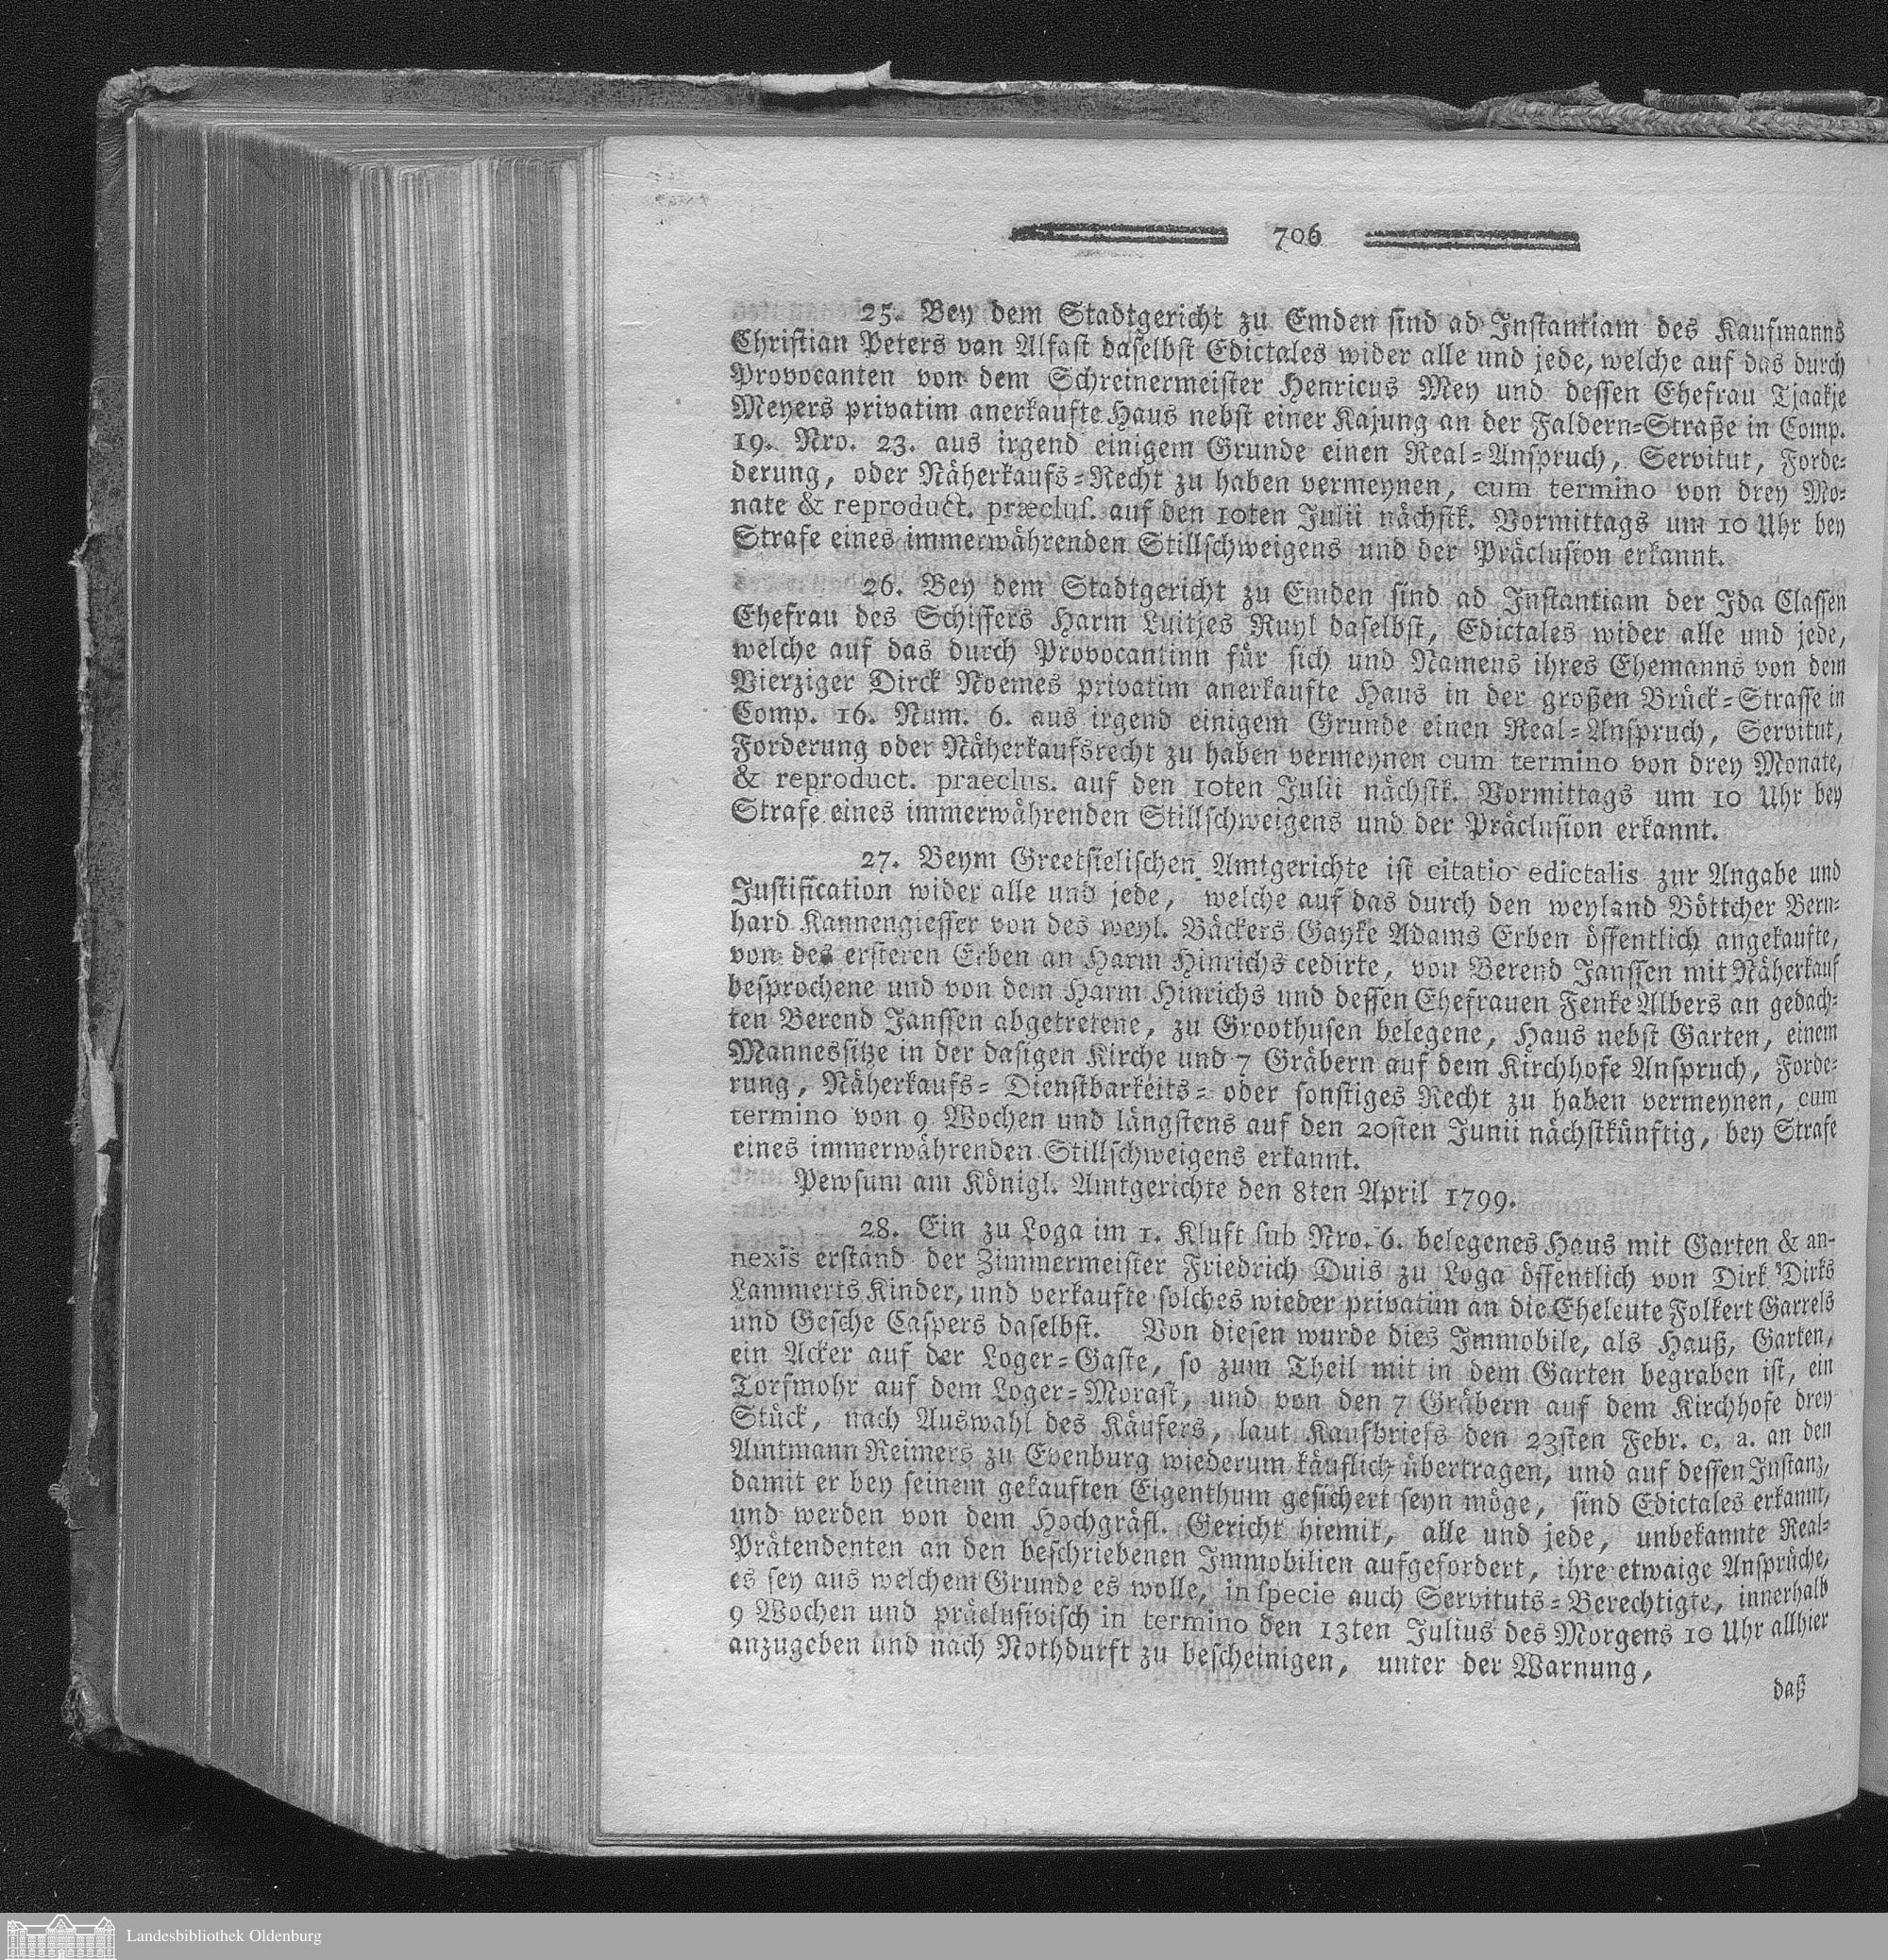 706
25. Bey dem Stadtgericht zu Emden sind ad Instantiam des Kaufmanns
Christian Peters van Alfast daselbst Edictales wider alle und jede, welche auf das durch
Provocanten von dem Schreinermeister Henricus Mey und dessen Ehefrau Tjaakje
Meyers privatim anerkaufte Haus nebst einer Kajung an der Faldern-Straße in Comp.
19. Nro. 23. aus irgend einigem Grunde einen Real-Anspruch, Servitut, Forde-
derung, oder Näherkaufs-Recht zu haben vermeynen, cum termino von drey Mo-
nate & reproduct. præclus. auf den 10ten Julii nächstk. Vormittags um 10 Uhr bey
Strafe eines immerwährenden Stillschweigens und der Präclusion erkannt.
26. Bey dem Stadtgericht zu Emden sind ad Instantiam der Ida Classen
Ehefrau des Schiffers Harm Luitjes Ruyl daselbst, Edictales wider alle und jede,
welche auf das durch Provocantinn für sich und Namens ihres Ehemanns von dem
Vierziger Dirck Noemes privatim anerkaufte Haus in der großen Brück-Strasse in
Comp. 16. Num. 6. aus irgend einigem Grunde einen Real-Anspruch, Servitut,
Forderung oder Näherkaufsrecht zu haben vermeynen cum termino von drey Monate,
& reproduct. praeclus. auf den 10ten Julii nächstk. Vormittags um 10 Uhr bey
Strafe eines immerwährenden Stillschweigens und der Präclusion erkannt.
27. Beym Greetsielischen Amtgerichte ist citatio edictalis zur Angabe und
Justification wider alle und jede, welche auf das durch den weyland Böttcher Bern-
hard Kannengiesser von des weyl. Bäckers Gayke Adams Erben öffentlich angekaufte,
von des ersteren Erben an Harm Hinrichs cedirte, von Berend Janssen mit Näherkauf
besprochene und von dem Harm Hinrichs und dessen Ehefrauen Fenke Albers an gedach-
ten Berend Janssen abgetretene, zu Groothusen belegene, Haus nebst Garten, einem
Mannessitze in der dasigen Kirche und 7 Gräbern auf dem Kirchhofe Anspruch, Forde-
rung, Näherkaufs- Dienstbarkeits- oder sonstiges Recht zu haben vermeynen, cum
termino von 9 Wochen und längstens auf den 20sten Junii nächstkünftig, bey Strafe
eines immerwährenden Stillschweigens erkannt.
Pewsum am Königl. Amtgerichte den 8ten April 1799.
28. Ein zu Loga im 1. Kluft sub Nro. 6. belegenes Haus mit Garten & an-
nexis erstand der Zimmermeister Friedrich Duis zu Loga öffentlich von Dirk Dirks
Lammerts Kinder, und verkaufte solches wieder privatim an die Eheleute Folkert Garrels
und Gesche Caspers daselbst. Von diesen wurde dies Immobile, als Hauß, Garten,
ein Acker auf der Loger-Gaste, so zum Theil mit in dem Garten begraben ist, ein
Torfmohr auf dem Loger-Morast, und von den 7 Gräbern auf dem Kirchhofe drey
Stück, nach Auswahl des Käufers, laut Kaufbriefs den 23sten Febr. c. a. an den
Amtmann Reimers zu Evenburg wiederum käuflich übertragen, und auf dessen Instanz,
damit er bey seinem gekauften Eigenthum gesichert seyn möge, sind Edictales erkannt,
und werden von dem Hochgräfl. Gericht hiemit, alle und jede, unbekannte Real-
Prätendenten an den beschriebenen Immobilien aufgefordert, ihre etwaige Ansprüche,
es sey aus welchem Grunde es wolle, in specie auch Servituts-Berechtigte, innerhalb
9 Wochen und präclusivisch in termino den 13ten Julius des Morgens 10 Uhr allhier
anzugeben und nach Nothdurft zu bescheinigen, unter der Warnung,
daß
Landesbibliothek Oldenburg